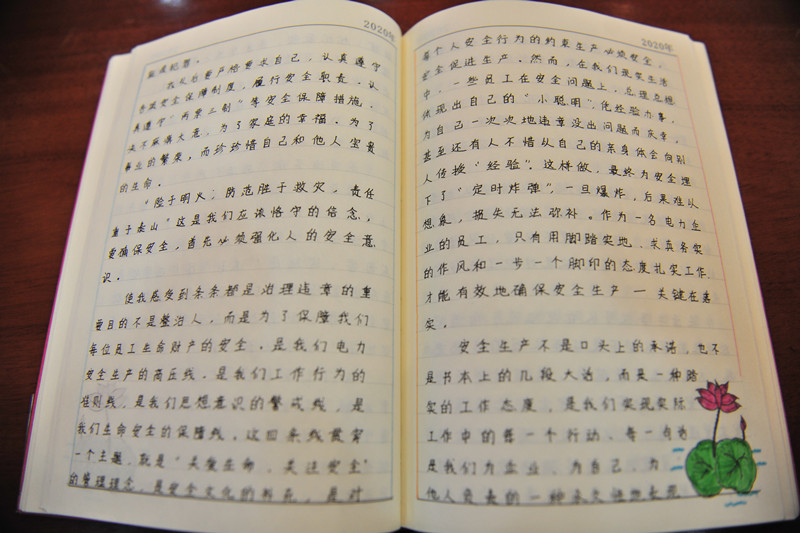 2020年
我今后要严格要求自己，认真遵守
各项安全保障制度，履行安全职责，认
真遵守“两票三制”等安全保障措施，
决不麻痹大意，为了家庭的幸福、为了
事业的繁荣，而珍珍惜自己和他人宝贵
的生命。
“隐于明火；防范胜于救灾，责任
重于泰山”这是我们应该恪守的信念，
要确保安全，首先必须强化人的安全意
识。
使我感受到条条都是治理违章的重
要目的不是整治人，而是为了保障我们
每位员工生命财产的安全。是我们电力
安全生产的高压线，是我们工作行为的
准则线，是我们思想意识的警戒线，是
我们生命安全的保障线。这四条线贯穿
一个主题，就是“关爱生命，关注安全”
的管理理念，是安全文化的
2020年
每个人安全行为的约束生产必须安全，
安全促进生产。然而，在我们现实生活
中，一些员工在安全问题上，总理总想
体现出自己的“小聪明”凭经验办事，
为自己一次次地违章没出问题而庆幸，
甚至还有人不惜从自己的亲身体会向别
人传授“经验”。这样做，最终为安全埋
下了“定时炸弹”，一旦爆炸，后果难以
想象，损失无法弥补。作为一名电力企
业的员工，只有用脚踏实地、求真务实
的作风和一步一个脚印的态度扎实工作，
才能有效地确保安全生产一关键在落
实。
安全生产不是口头上的承诺，也不
是书本上的几段大话，而是一种踏
实的工作态度，是我们实现实际
工作中的每一个行动、每一句话
是我们为企业、为自己、为
他人负责的一种永久